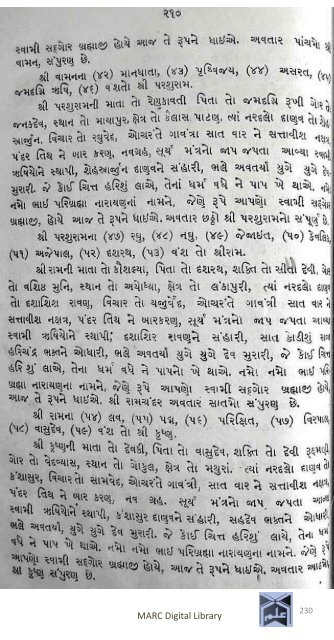 ૨૬૭
સ્વામી સદ્ગોર બ્રહ્માજી હોયે આજ તે રૂપને ધાઈએ. અવતાર પાંચમો શ્રી
વામન, સંપુરણ છે.
શ્રી વામનના (૪૨) માનધાતા, (૪૩) પૃથ્વિજય, (૪૪) અસરત, (૪૫)
જમદગ્નિ ઋષિ, (૪૬) વંશતો શ્રી પરશુરામ.
શ્રી પરશુરામની માતા તો રેણુકાવતી પિતા તો જમદગ્નિ રૂખી ગોર તો
જનકદેવ, સ્થાન તો માયાપુર, ક્ષેત્ર તો કૈલાસ પાટણ, ત્યાં નરદલો દાણવ તો
અર્જુન. વિચાર તો રઘુવેદ, ઓચરતે ગાવંત્રી સાત વાર ને સત્તાવીશ નક્ષત્ર
પંદર તિથ ને બાર કરણ, નવગ્રહ, સૂર્ય મંત્રનો જાપ જપતા આવ્યા સ્વામી
ઋષિયોને સ્થાપી, દાણવને સંહારી, ભલે અવતર્યા યુગે યુગે દેવ
મુરારી. જે કોઈ ચિત્ત હરિશું લાએ, તેનાં ધર્મ વધે ને પાપ ખે થાએ. નમો
નમો ભાઈ પરિબ્રહ્મા નારાયણુનાં નામને, જેણે રૂપે આપણો સ્વામી સદ્ગોર
બ્રહ્માજી, હોયે આજ તે રૂપને ધાઈએ. અવતાર છઠ્ઠો શ્રી પરશુરામનો સંપૂર્ણ છે.
શ્રી પરશુરામના (૪૭) રઘુ, (૪૮) નઘુ, (૪૯) (૫૦)
(૫૧) અજેપાલ, (૫૨) દશરથ, (૫૩) વંશ તો શ્રીરામ.
શ્રી રામની માતા તો કૌશલ્યા, પિતા તો દશરથ, શક્તિ તો સીતા દેવી, ગોર
તો વશિષ્ઠ મુનિ, સ્થાન તો અયોધ્યા, ક્ષેત્ર તો લંકાપુરી, ત્યાં નરદલો દાણવ
તો દશશિશ રાવણ, વિચાર તો યજુર્વેદ, ઓચરતે ગાવંત્રી સાત વાર ને
સત્તાવીશ નક્ષત્ર, પંદર તિથ ને બારકરણ, સૂર્ય મંત્રનો જાપ જપતા આવ્યા
સ્વામી ઋષિયોને સ્થાપી, દશશિર રાવણને સંહારી, સાત
હરિચંદ્ર ભક્તને ઓધારી, ભલે અવતર્યા યુગે યુગે દેવ મુરારી, જે કોઈ ચિત્ત
હરિશું લાએ, તેના ધર્મ વધે ને પાપનો ખે થાએ. નમો નમો ભાઈ પરિ
બ્રહ્મા નારાયણના નામને, જેણે રૂપે આપણો સ્વામી સદ્ગોર બ્રહ્માજી હોયે
આજ તે રૂપને ધાઈએ. શ્રી રામચંદ્ર અવતાર સાતમો સંપુરણ છે.
શ્રી રામના (૫૪) લવ, (૫૫) પદ્મ, (૫૬) પરિક્ષિત, (૫૭) વિરપાળ,
(૫૮) વાસુદેવ, (૫૯) વંશ તો શ્રી કૃષ્ણ.
શ્રી કૃષ્ણની માતા તો દેવકી, પિતા તો વાસુદેવ, શક્તિ તો દેવી રૂક્ષ્મણી
ગોર તો વેદવ્યાસ, સ્થાન તો ગોકુલ, ક્ષેત્ર તો મથુરાં. ત્યાં નરદલો દાણવ તો
કંશાસુર, વિચાર તો સામવેદ, ઓચરતે ગાવંત્રી, સાત વાર ને સત્તાવીશ નક્ષત્ર,
પંદર તિથ ને બાર કરણ, નવ ગ્રહ. સૂર્ય મંત્રનો જાપ જપતા આવ્યા
સ્વામી ઋષિયોને સ્થાપી, કંશાસુર દાણવને સંહારી, સહદેવ ભક્તને ઓધારી,
ભલે અવતર્યા, યુગે યુગે દેવ મુરારી. જે કોઈ ચિત્ત હરિશું લાયે, તેના ધર્મ
વધે ને પાપ ખે થાએ. નમો નમો ભાઈ પરિબ્રહ્મા નારાયણના નામને. જેણે રૂપે
આપણો સ્વામી સદ્ગોર બ્રહ્માજી હોયે, આજ તે રૂપને ધાઈએ, અવતાર આઠમો
શ્રી કૃષ્ણ સંપુરણ છે.
MARC Digital Library
230